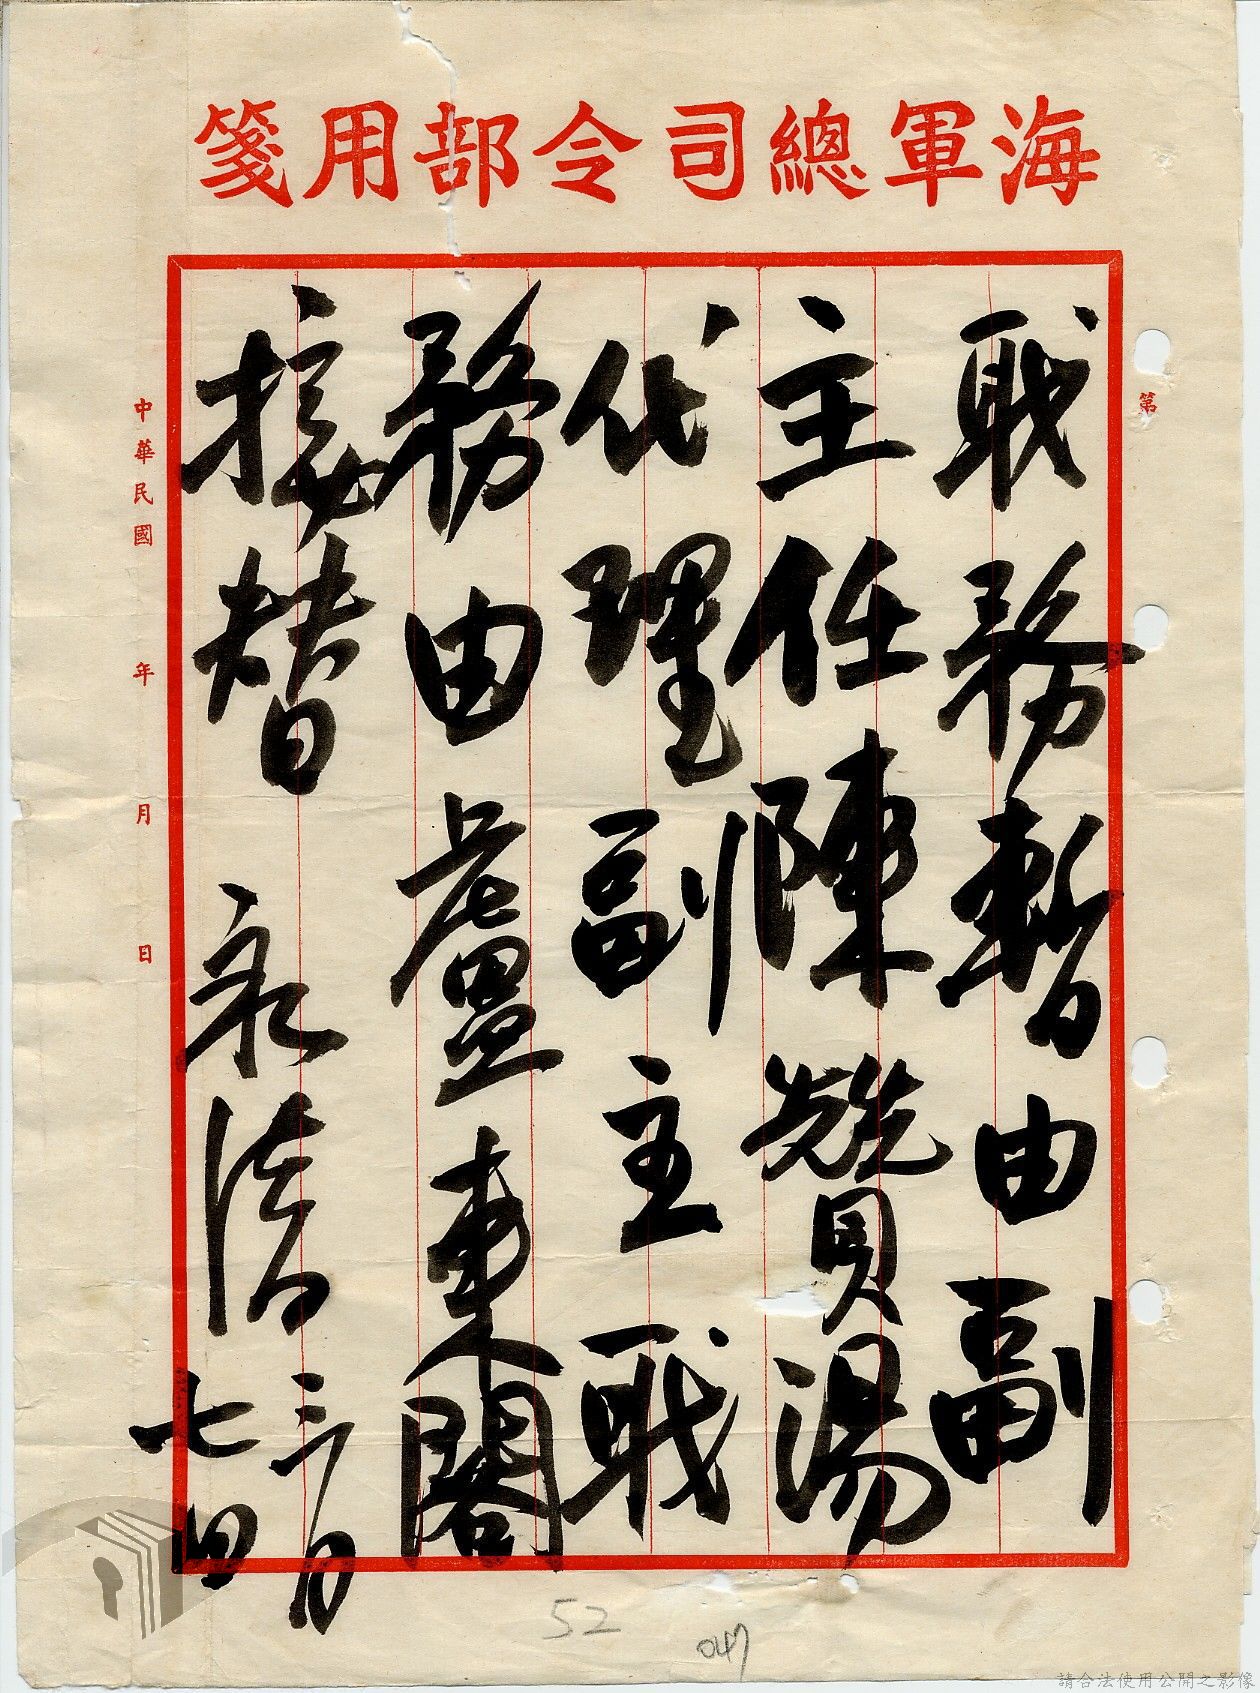 海軍總司令部用箋
第
職務暫由副
主任陳贊湯
代理副主職
務由盧東閣
接替
永清三月
七日
中華民國 年 月 日
52
047
請合法使用公開之影像